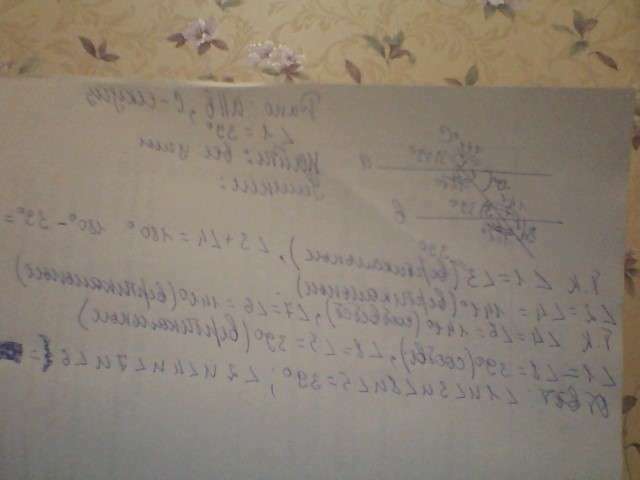 Дано: a||b, c - секущая
∠1 = 39°
Найти: все углы
Решение:
c
a
b
Т.к ∠1 = ∠3 (вертикальные), ∠3 + ∠4 = 180° 180° - 39° =
∠2 = ∠4 = 141° (вертикальные)
Т.к ∠4 = ∠6 = 141° (соотв), ∠7 = ∠6 = 141° (вертикальные)
∠1 = ∠8 = 39° (соотв), ∠8 = ∠5 = 39° (вертикальные)
Ответ ∠1 и ∠3 и ∠8 и ∠5 = 39°, ∠2 и ∠4 и ∠7 и ∠6 =